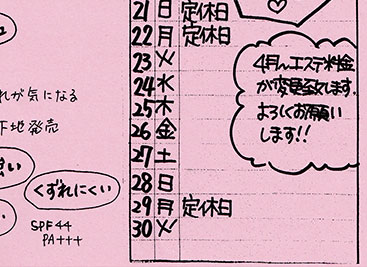 21 日 定休日
22 月 定休日
23 火
24 水
25 木
26 金
27 土
28 日
29 月 定休日
30 火
4月〜エステ料金
が変更致します。
よろしくお願い
します!!
れが気になる
下地発売
くずれにくい
SPF44
PA+++